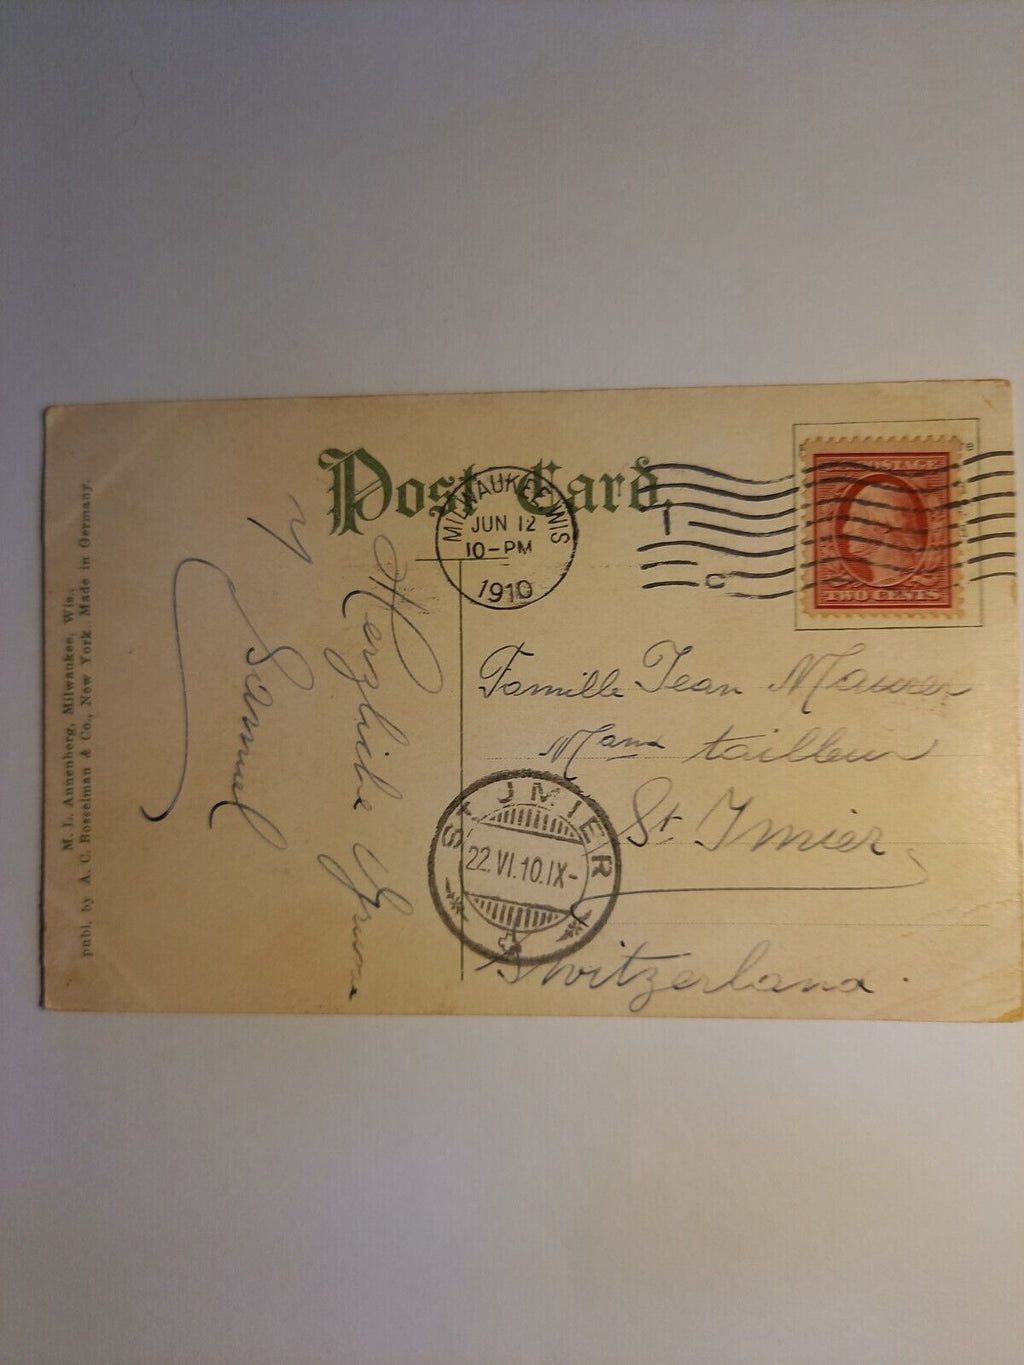 Post Card.
MILWAUKEE, WIS
JUN 12
10-PM
1910
POSTAGE
TWO CENTS
Famille Jean Maurer
tailleur
St Imier
Switzerland.
ST. JMIER
22.VI.10.IX-
Herzliche Grüsse
Samuel
M. L. Annenberg, Milwaukee, Wis.
publ. by A. C. Bosselman & Co., New York. Made in Germany.